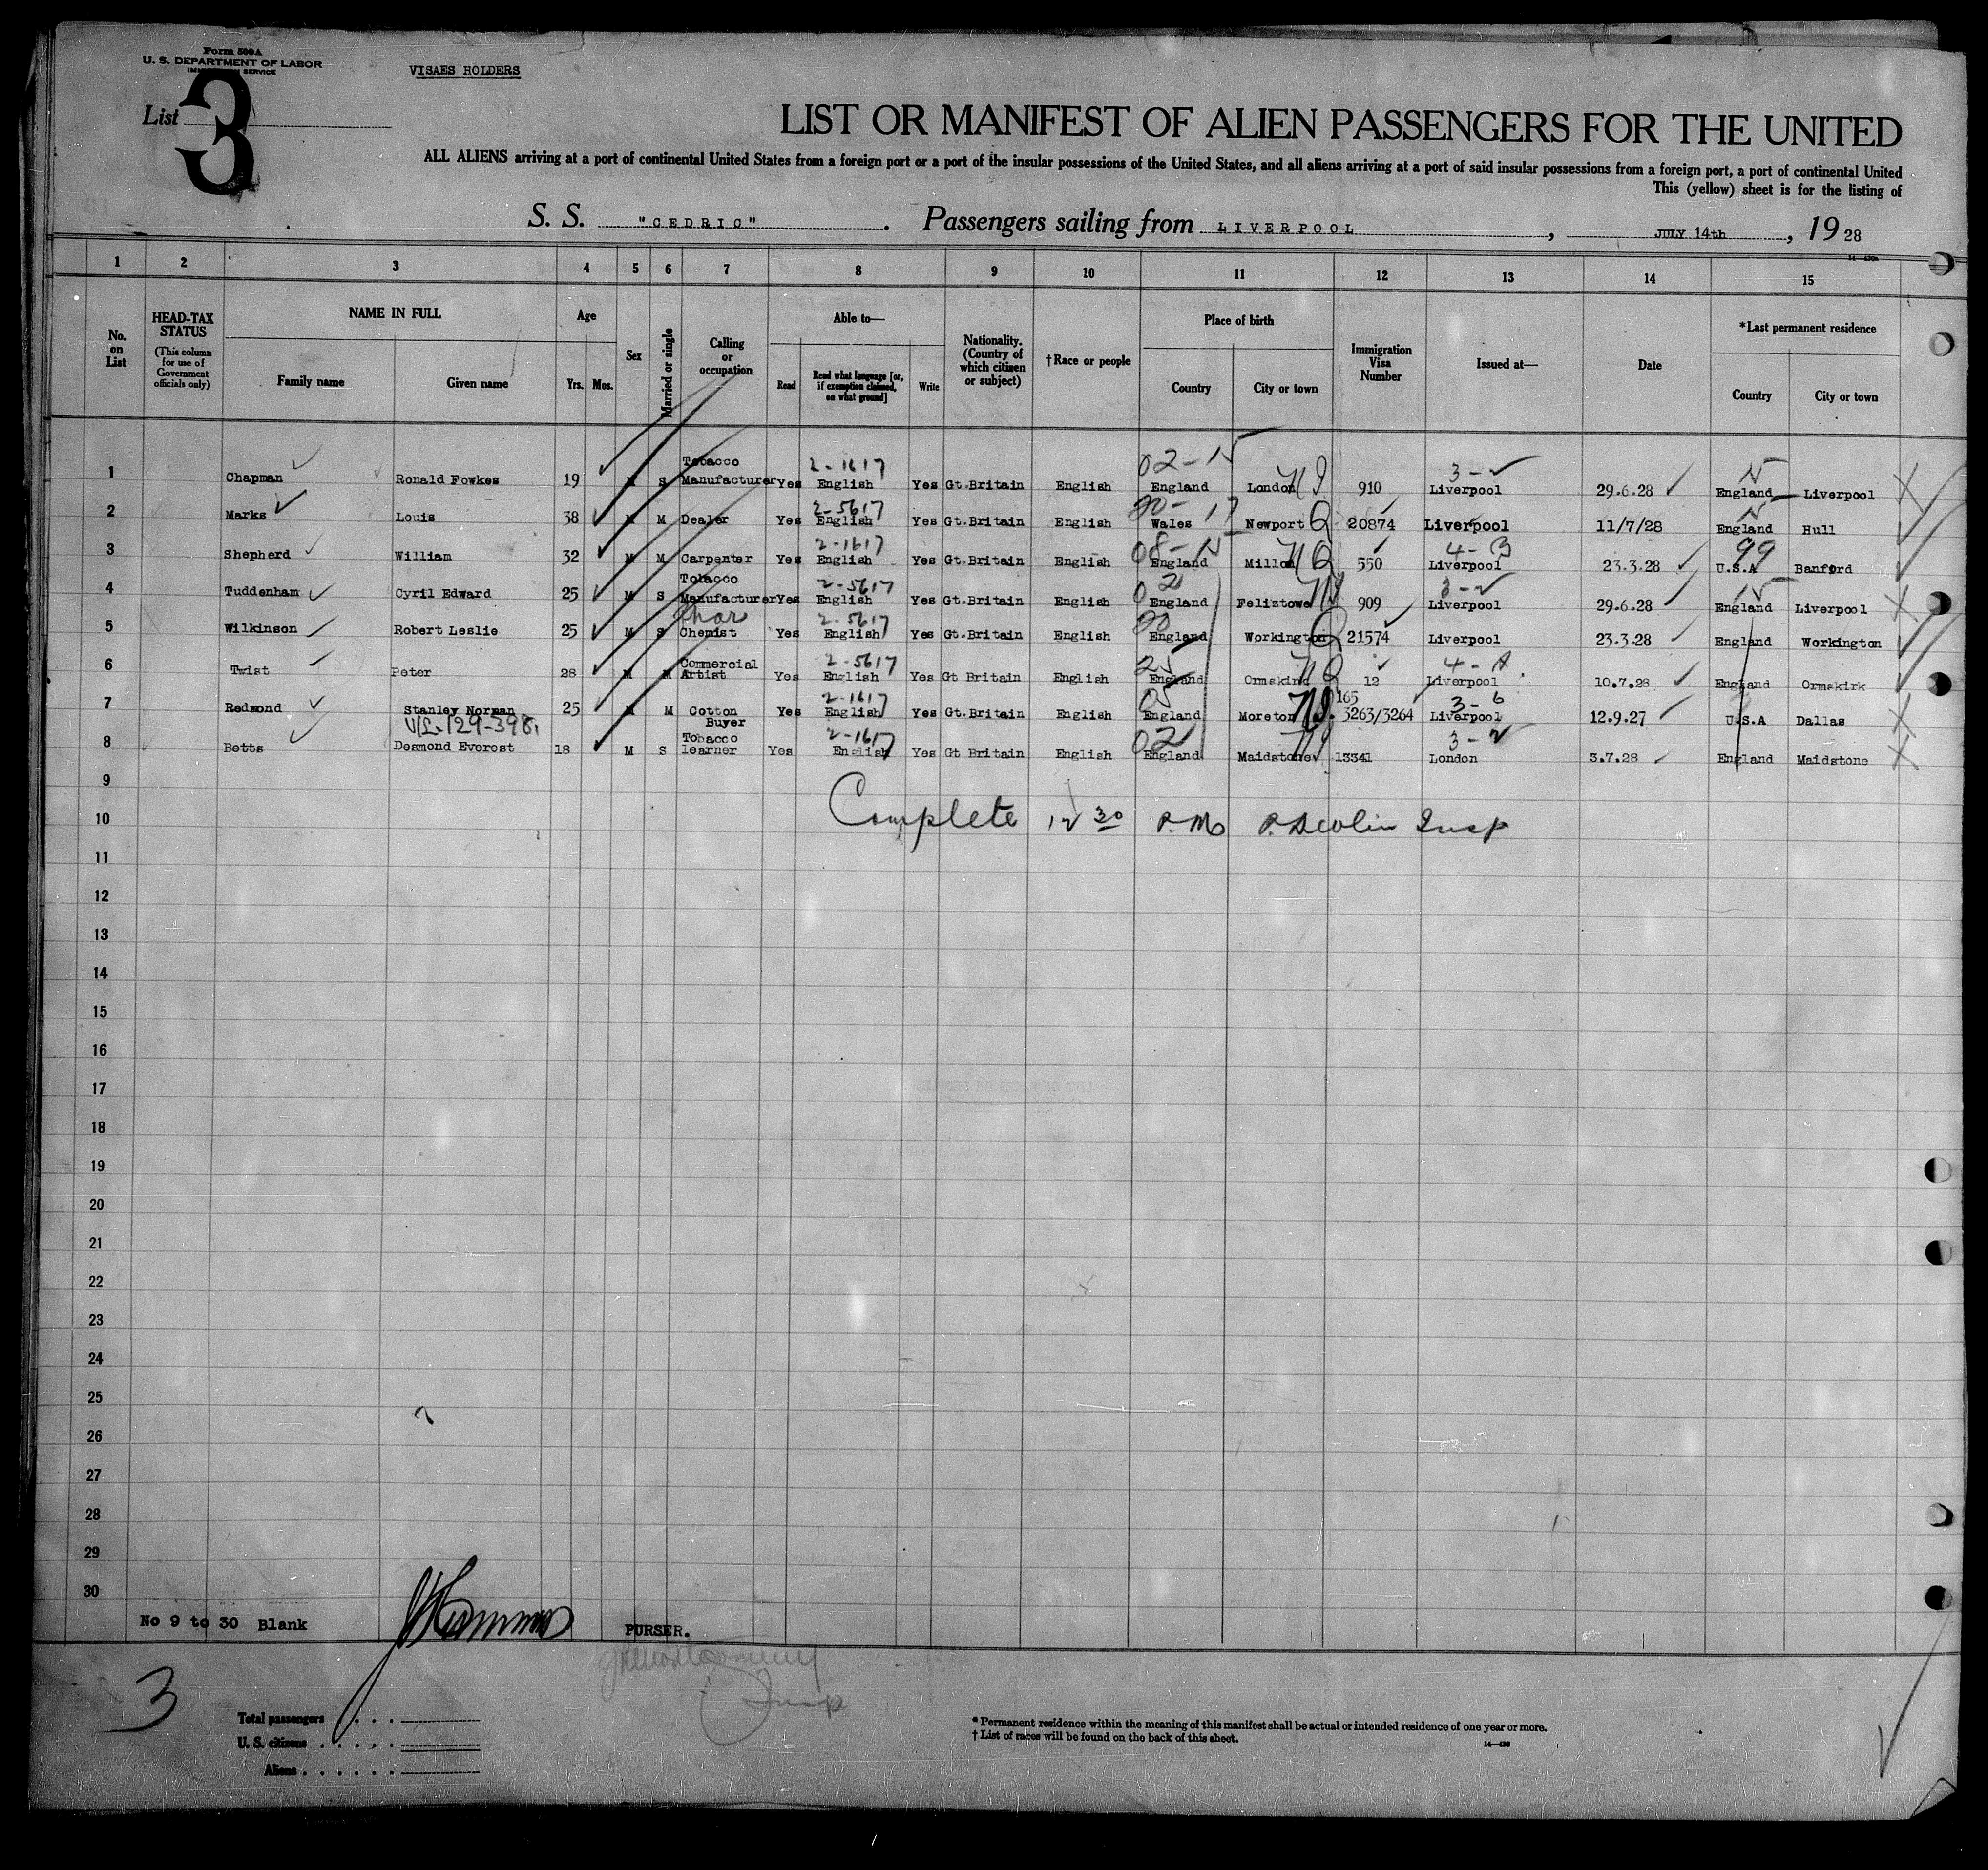 Form 500A
U. S. DEPARTMENT OF LABOR
IMMIGRATION SERVICE
VISAES HOLDERS
List 3
LIST OR MANIFEST OF ALIEN PASSENGERS FOR THE UNITED
ALL ALIENS arriving at a port of continental United States from a foreign port or a port of the insular possessions of the United States, and all aliens arriving at a port of said insular possessions from a foreign port, a port of continental United
This (yellow) sheet is for the listing of
S. S. "CEDRIC". Passengers sailing from LIVERPOOL, JULY 14th, 1928
1 2 3 4 5 6 7 8 9 10 11 12 13 14 15
No. on List
HEAD-TAX STATUS
(This column for use of Government officials only)
NAME IN FULL
Family name Given name
Age
Yrs. Mos.
Sex
Married or single
Calling or occupation
Able to—
Read Read what language [or, if exemption claimed, on what ground] Write
Nationality. (Country of which citizen or subject)
†Race or people
Place of birth
Country City or town
Immigration Visa Number
Issued at—
Date
*Last permanent residence
Country City or town
2-1617 02-15 3-2 15
1 Chapman Ronald Fowkes 19 M S Tobacco Manufacturer Yes English Yes Gt.Britain English England London 910 Liverpool 29.6.28 England Liverpool
2-5617
2 Marks Louis 38 M M Dealer Yes English Yes Gt.Britain English Wales Newport 20874 Liverpool 11/7/28 England Hull
2-1617 4-B 99
3 Shepherd William 32 M M Carpenter Yes English Yes Gt.Britain English England Millom 550 Liverpool 23.3.28 U.S.A Banford
2-5617 02 3-2 15
4 Tuddenham Cyril Edward 25 M S Tobacco Manufacturer Yes English Yes Gt.Britain English England Felixtowe 909 Liverpool 29.6.28 England Liverpool
2-5617
5 Wilkinson Robert Leslie 25 M S Chemist Yes English Yes Gt.Britain English England Workington 21574 Liverpool 23.3.28 England Workington
2-5617 25 4-A
6 Twist Peter 28 M M Commercial Artist Yes English Yes Gt Britain English England Ormskirk 12 Liverpool 10.7.28 England Ormskirk
2-1617 05 165 3-6
7 Redmond Stanley Norman 25 M M Cotton Buyer Yes English Yes Gt.Britain English England Moreton 3263/3264 Liverpool 12.9.27 U.S.A Dallas
2-1617 02 3-2
8 Betts Desmond Everest 18 M S Tobacco learner Yes English Yes Gt Britain English England Maidstone 13341 London 3.7.28 England Maidstone
9
10 Complete 12 30 P.M. Insp
11
12
13
14
15
16
17
18
19
20
21
22
23
24
25
26
27
28
29
30
No 9 to 30 Blank PURSER.
Insp
3
Total passengers
U. S. citizens
Aliens
* Permanent residence within the meaning of this manifest shall be actual or intended residence of one year or more.
† List of races will be found on the back of this sheet.